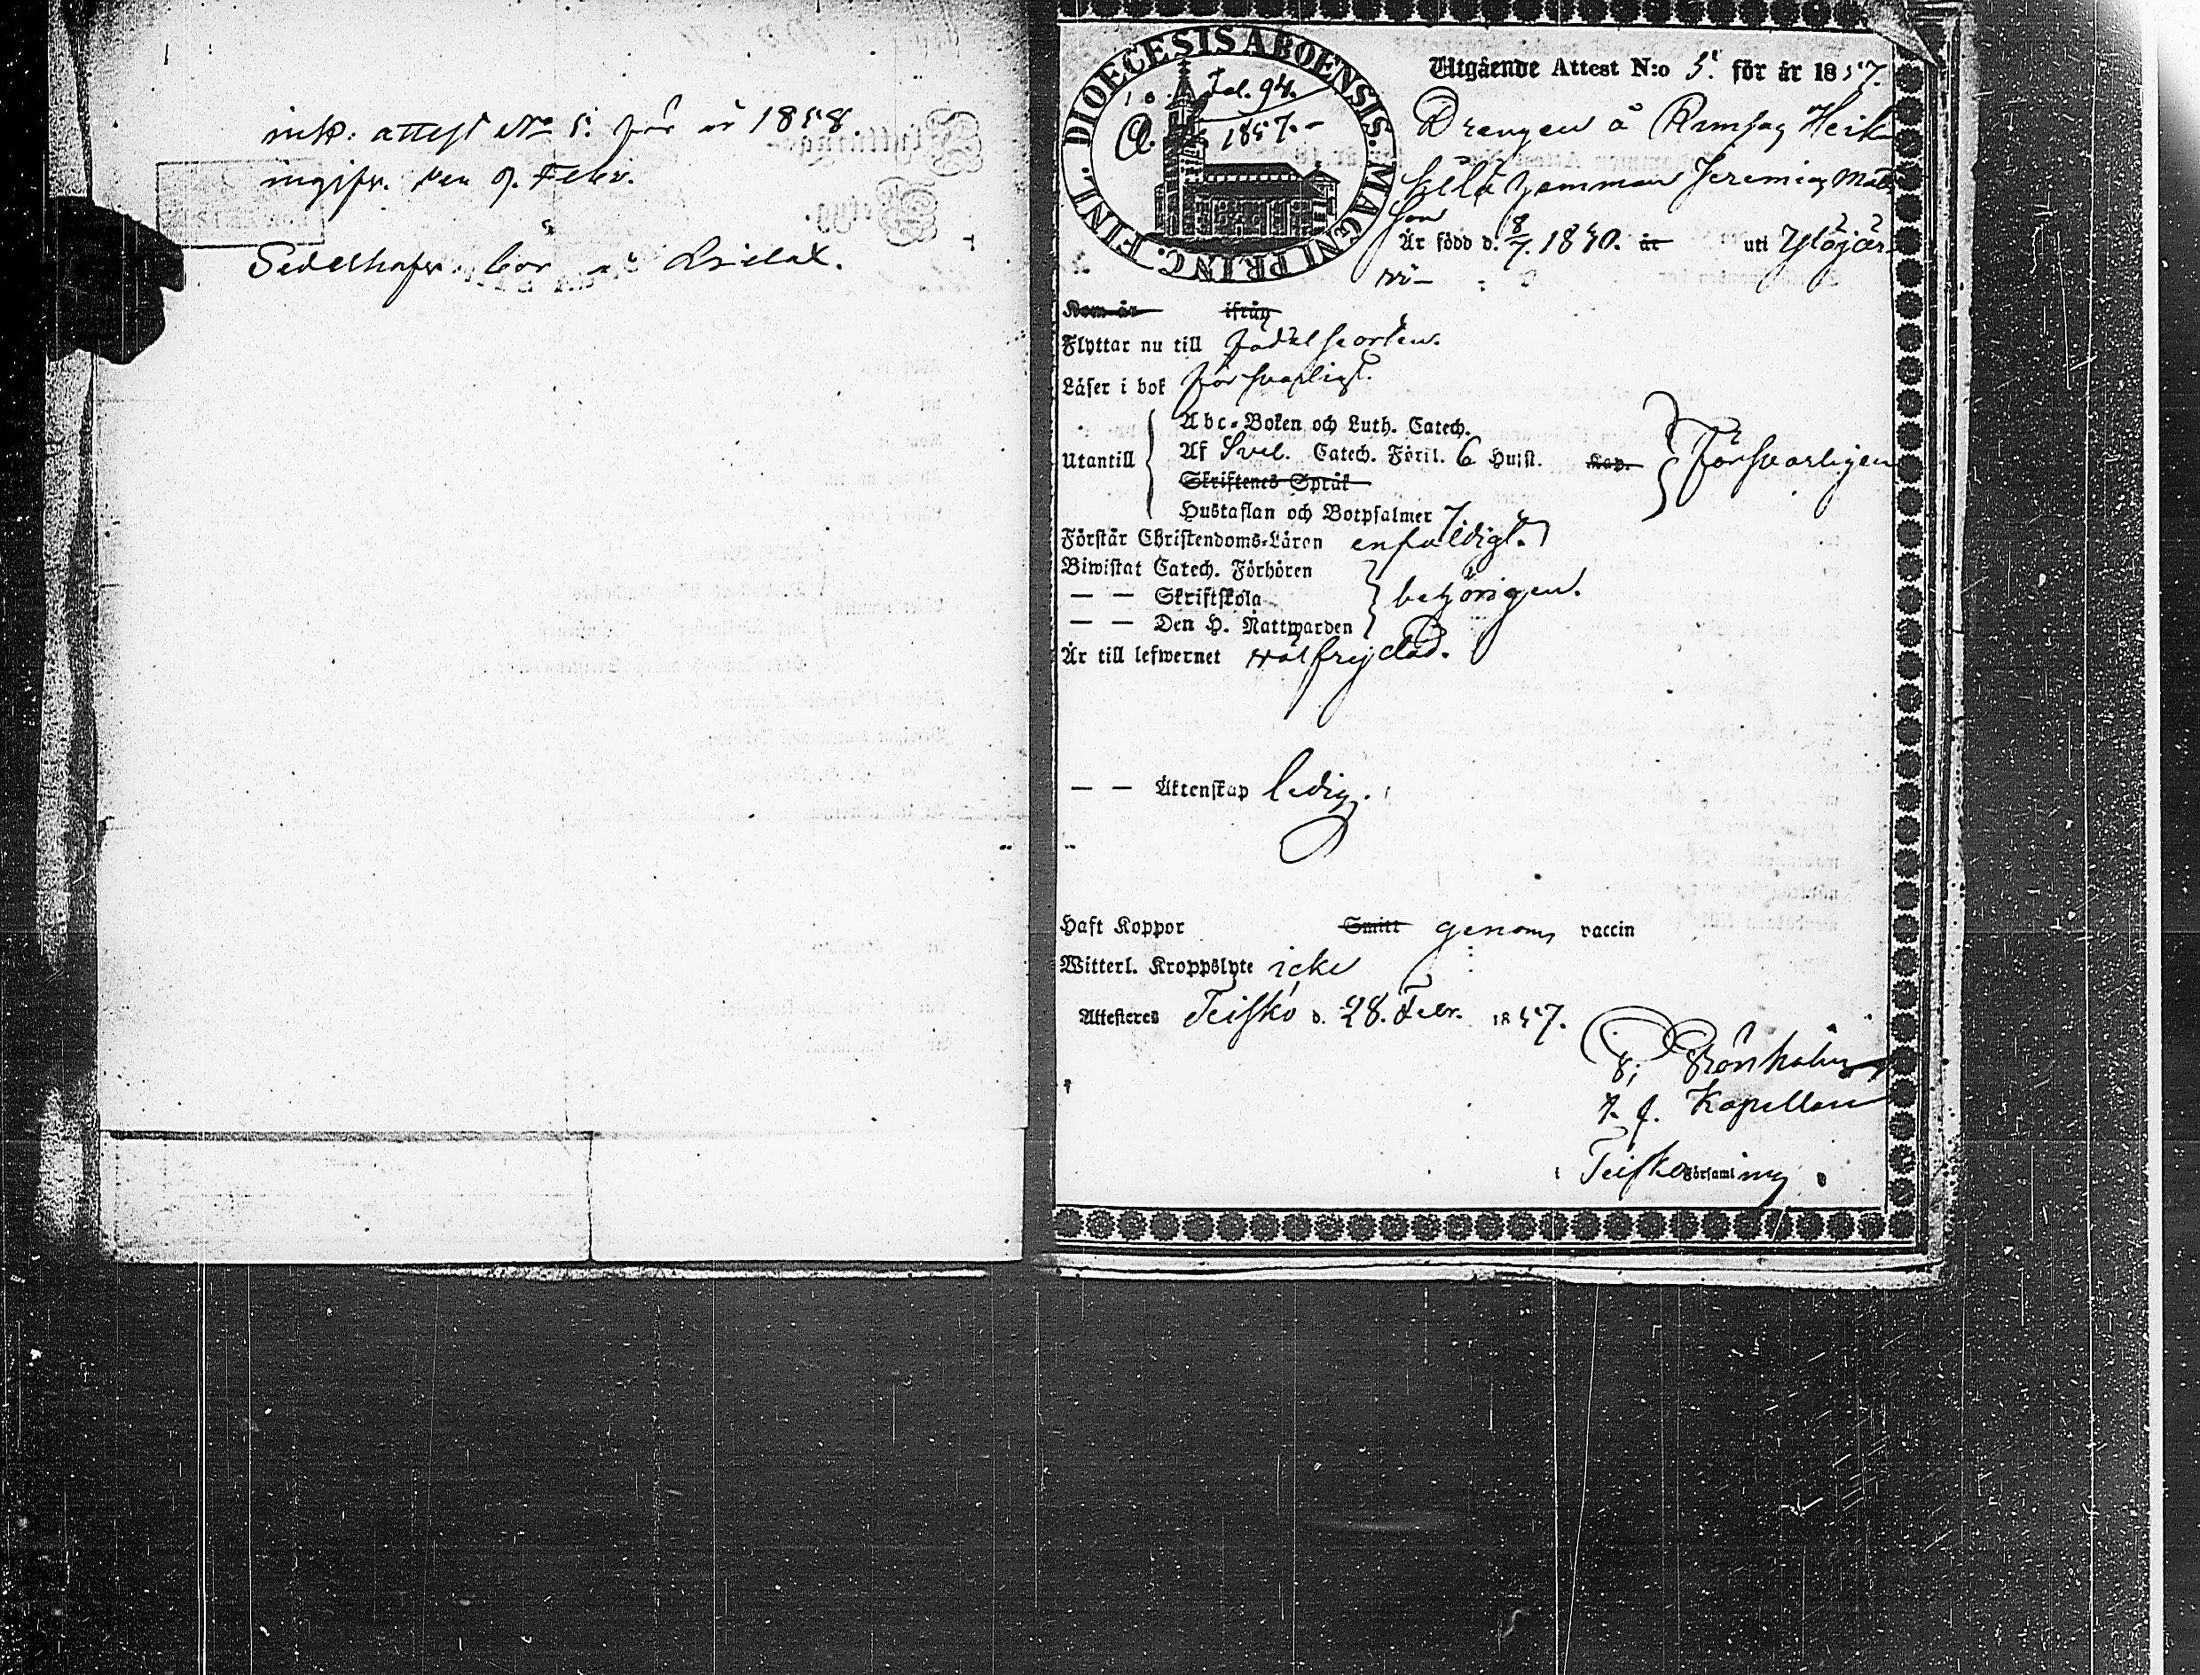 ink: attest No 5. för år 1858.
ingifv. den 9. Febr.
Sedelhafv. bor å
DIOECESIS ABOENSIS. MAGNI PRINC. FINL.
Fol. 94.
1857.
Utgående Attest N:o 5. för år 1857.
Drengen å Rimsag Heik
kilä hemman Jeremias Mats
son
Är född d. 8/7. 1840. år uti Ylöjär
vi
Kom år ifrån
Flyttar nu till födelseorten.
Läser i bok försvarligt.
Abc-Boken och Luth. Catech.
Utantill Af Svel. Catech.Föril. 6 Hufst. Kap. Försvarligen
Skriftenes Språk
Hustaflan och Botpsalmer 7
Förstår Christendoms-Läran enfaldigt.
Biwistat Catech. Förhören
— — Skriftskola behörigen.
— — Den H. Nattwarden
Är till lefwernet välfrejdad.
— — Äktenskap ledig.
Haft Koppor Smitt genom vaccin
Witterl. Kroppslyte icke
Attesteres Teisko d. 28. Febr. 1857.
Grönholm
t. f. Kapellan
i Teisko Församling